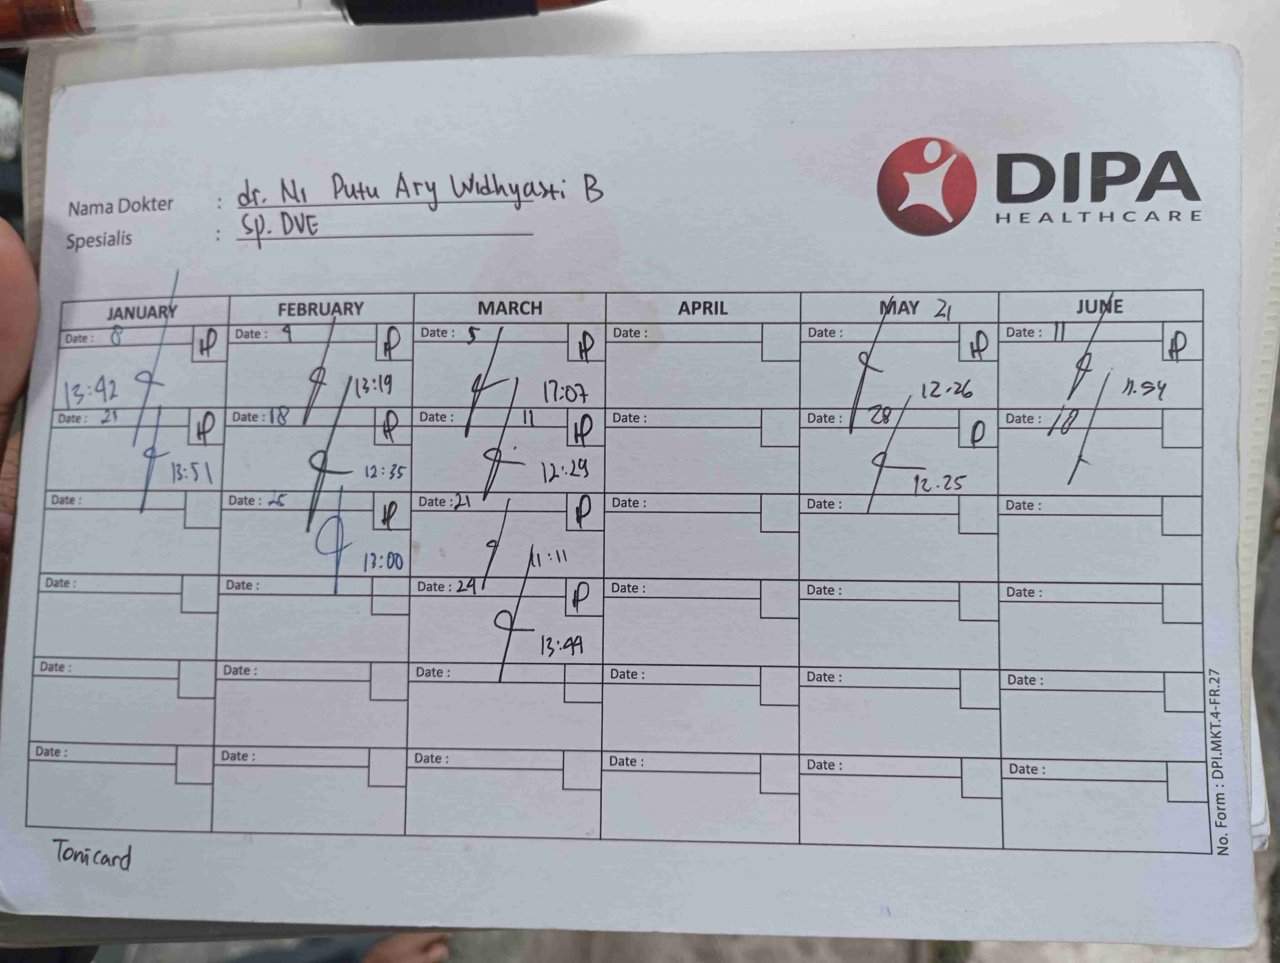 DIPA
HEALTHCARE
Nama Dokter : dr. Ni Putu Ary Widhyasti B
Spesialis : Sp. DVE
JANUARY FEBRUARY MARCH APRIL MAY 21 JUNE
Date : 8 Date : 4 Date : 5 Date : Date : Date : 11
13:42 13:19 17:07 12.26 11.54
Date : 21 Date : 18 Date : 11 Date : Date : 28 Date : 18
13:51 12:35 12:29 12.25
Date : Date : 25 Date : 21 Date : Date : Date :
13:00 11:11
Date : Date : Date : 24 Date : Date : Date :
13:44
Date : Date : Date : Date : Date : Date :
Date : Date : Date : Date : Date : Date :
No. Form : DPI.MKT.4-FR.27
Tonicard